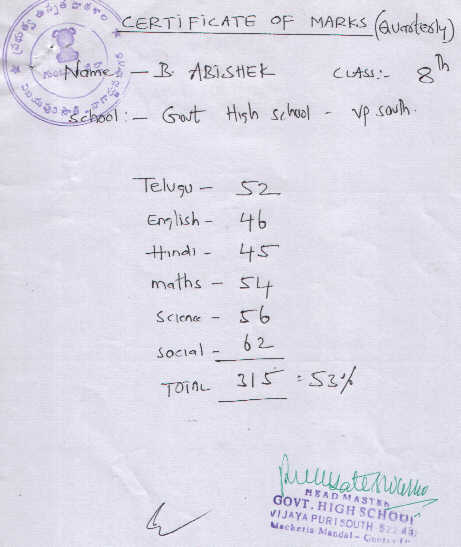 CERTIFICATE OF MARKS (Quarterly)
Name — B. ABISHEK CLASS:- 8th
School:— Govt High school - vp south.
Telugu — 52
English - 46
Hindi - 45
maths - 54
Science - 56
social - 62
TOTAL 315 = 53%
HEAD MASTER
GOVT. HIGH SCHOOL
VIJAYA PURI SOUTH
Macherla Mandal -